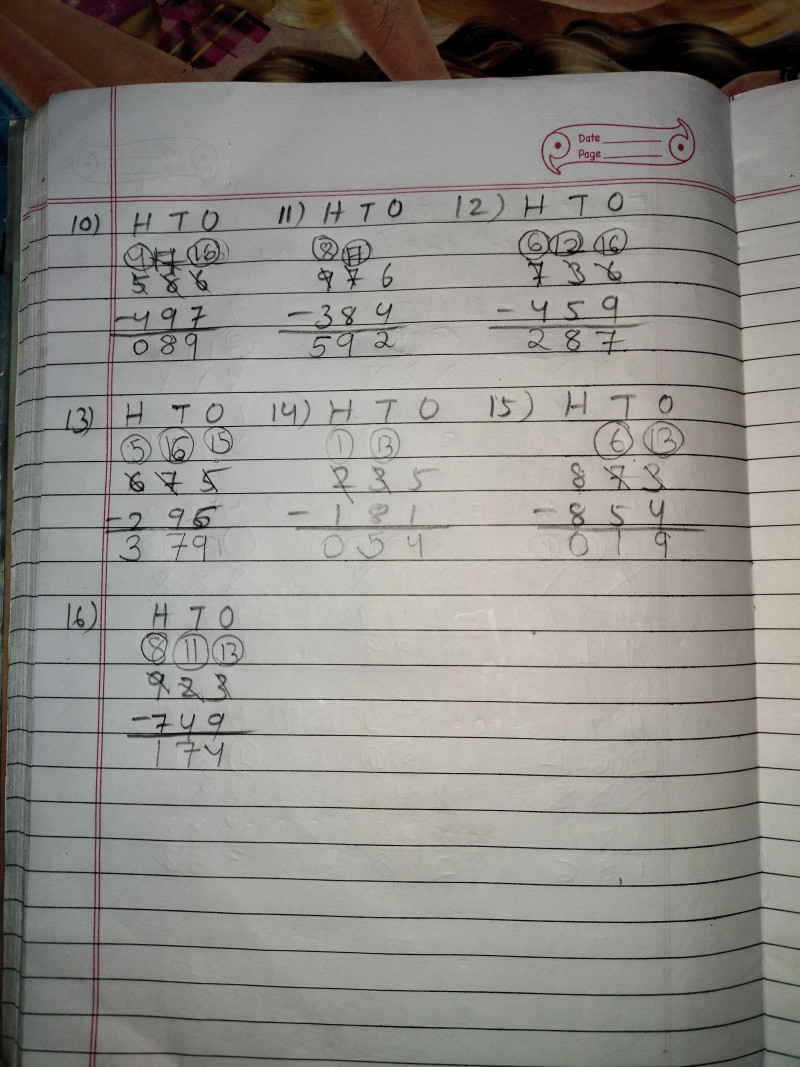 Date
Page
10) H T O 11) H T O 12) H T O
4 17 16 8 17 6 12 16
5 8 6 9 7 6 7 3 6
-4 9 7 -3 8 4 -4 5 9
0 8 9 5 9 2 2 8 7
13) H T O 14) H T O 15) H T O
5 16 15 1 13 6 13
6 7 5 2 3 5 8 7 3
-2 9 6 -1 8 1 -8 5 4
3 7 9 0 5 4 0 1 9
16) H T O
8 11 13
9 2 3
-7 4 9
1 7 4